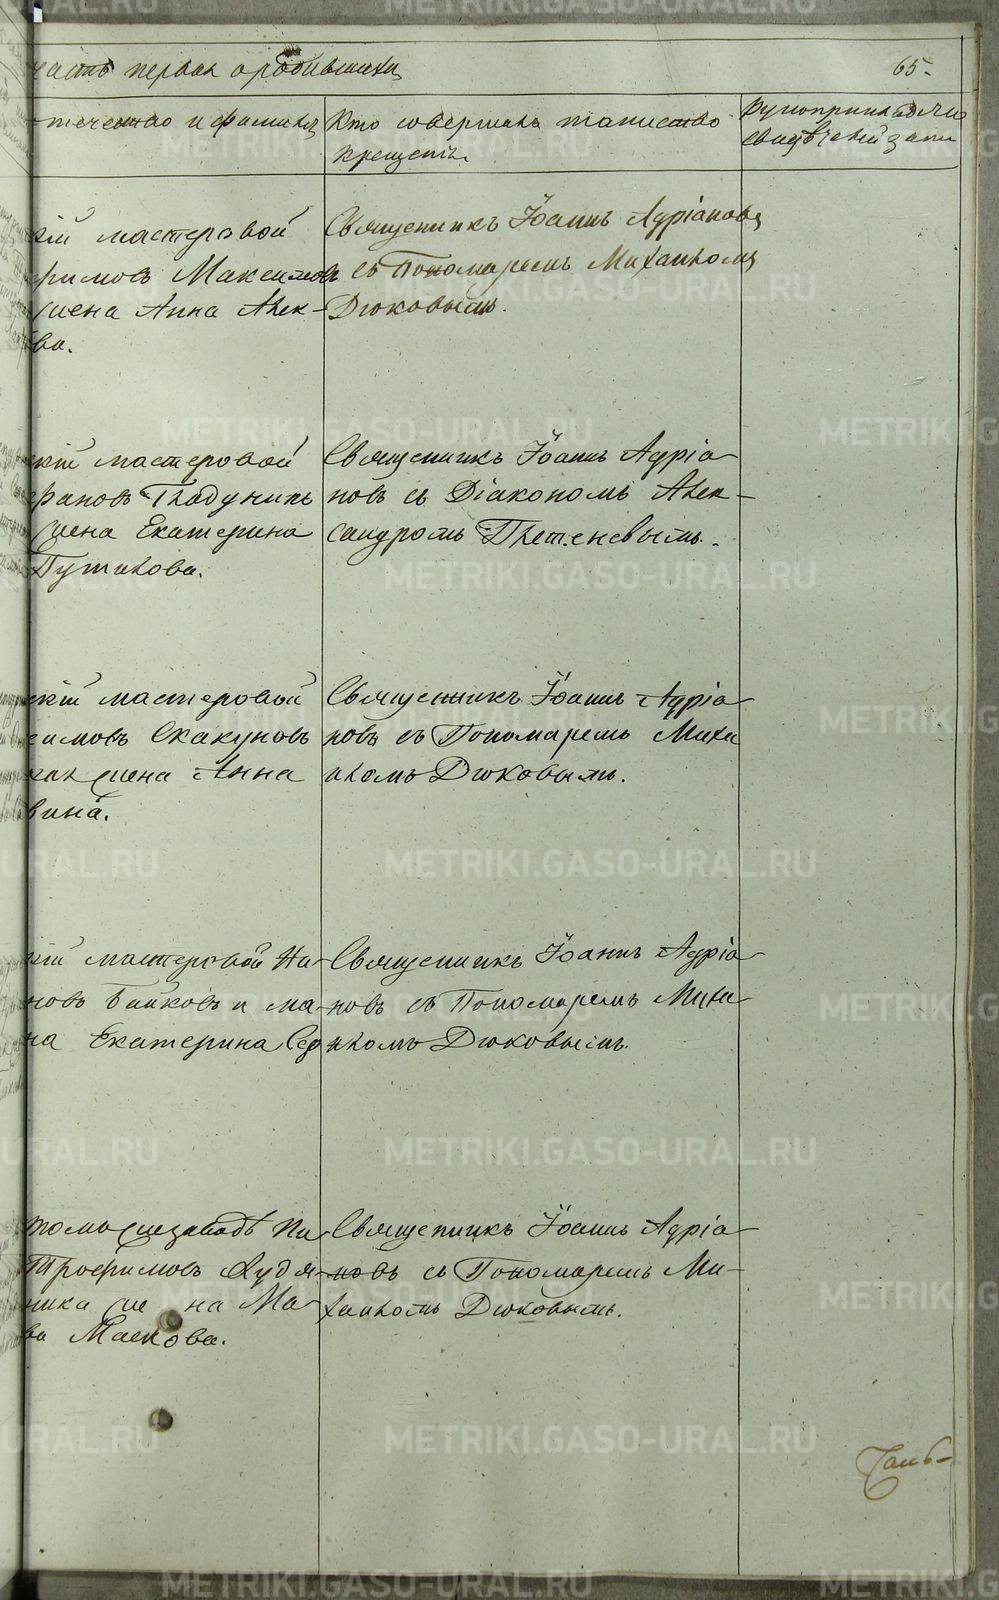 часть первая о родившихся
65.
отечество и фамилія
Кто совершалъ таинство
крещенія.
рукоприкладство
свидѣтелей запи
кій мастеровой
римовъ Максимовъ
жена Анна Алек-
ва.
Священникъ Іоаннъ Адріановъ
съ Пономаремъ Михаиломъ
Дюковымъ.
скій мастеровой
фановъ Гладунинъ
жена Екатерина
Путилова.
Священникъ Іоаннъ Адріа-
новъ съ Діакономъ Алек-
сандромъ Плетеневымъ.
скій мастеровый
симовъ Скакуновъ
ная жена Анна
вина.
Священникъ Іоаннъ Адріа
новъ съ Пономаремъ Миха
иломъ Дюковымъ.
кій мастеровой Ив-
новъ Байковъ и ма-
на Екатерина Сер
Священникъ Іоаннъ Адріа-
новъ съ Пономаремъ Миха
иломъ Дюковымъ.
томъ заводѣ
Трофимовъ Худя-
ника же на Ма-
ва Маслова.
Священникъ Іоаннъ Адріа-
новъ съ Пономаремъ Ми-
хаиломъ Дюковымъ.
METRIKI.GASO-URAL.RU